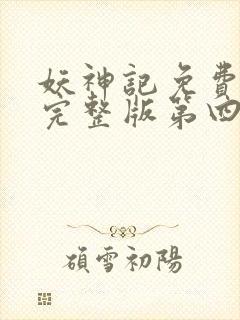 妖神記免費
完整版第四
碩雪初陽